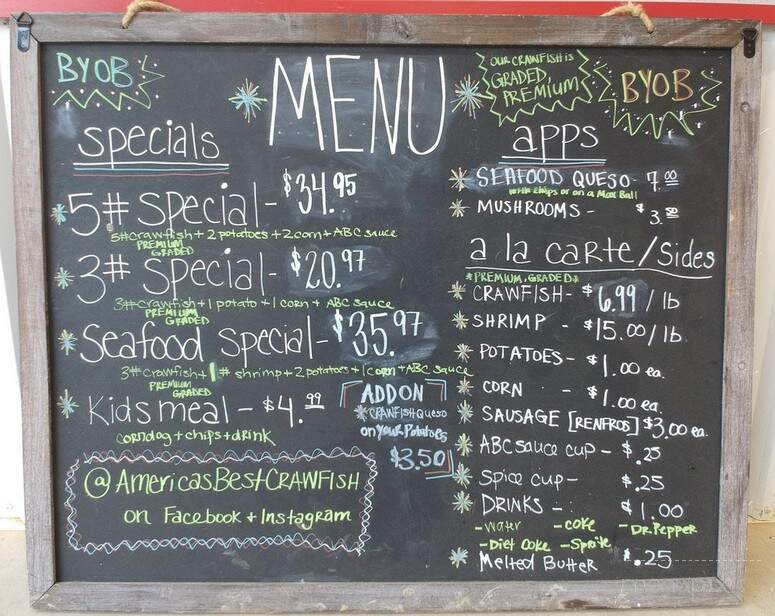 BYOB
MENU
OUR CRAWFISH IS
GRADED,
PREMIUM
BYOB
specials
5# special - $34.95
5# crawfish + 2 potatoes + 2 corn + ABC sauce
PREMIUM
GRADED
3# special - $20.97
3# crawfish + 1 potato + 1 corn + ABC sauce
PREMIUM
GRADED
Seafood special - $35.97
3# crawfish + 1# shrimp + 2 potatoes + 1 corn + ABC sauce
PREMIUM
GRADED
Kids meal - $4.99
corndog + chips + drink
ADD ON
CRAWFISH Queso
on your Potatoes
$3.50
@AmericasBestCRAWFISH
on Facebook + Instagram
apps
SEAFOOD QUESO - 7.00
with chips or on a Mac Ball
MUSHROOMS - $3.50
a la carte/Sides
*PREMIUM, GRADED*
CRAWFISH - $6.99 / lb
SHRIMP - $15.00/lb
POTATOES - $1.00 ea.
CORN - $1.00 ea.
SAUSAGE [RENFROS] $3.00 ea.
ABC sauce cup - $.25
Spice cup - $.25
DRINKS - $1.00
- Water - coke - Dr. Pepper
- Diet Coke - Sprite
Melted Butter $.25